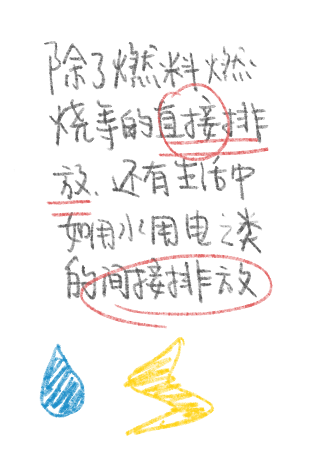 除了燃料燃
烧等的直接排
放、还有生活中
如用水用电之类
的间接排放